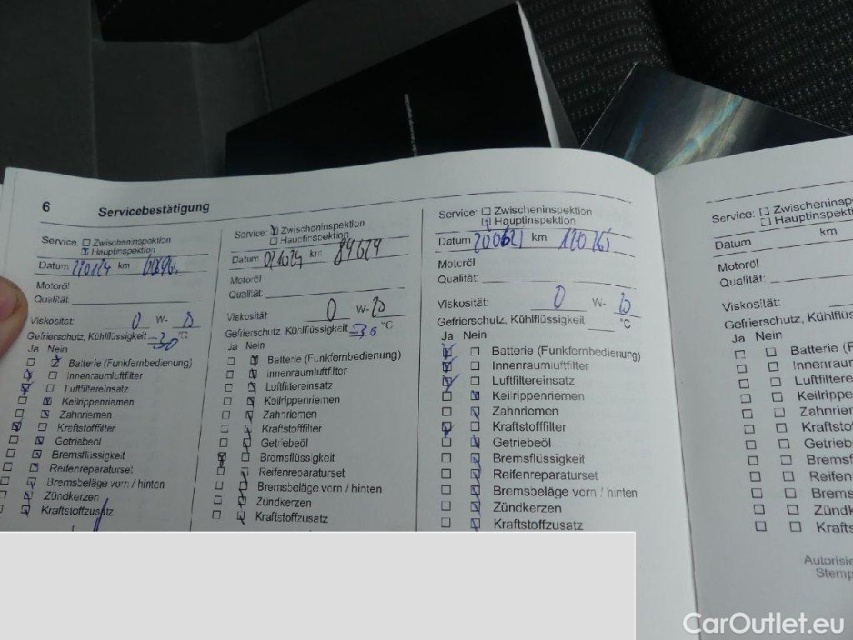 6 Servicebestätigung
Service: Zwischeninspektion
Hauptinspektion
Datum km
Motoröl
Qualität:
Viskosität: 0 W-
Gefrierschutz, Kühlflüssigkeit -30 °C
Ja Nein
Batterie (Funkfernbedienung)
Innenraumluftfilter
Luftfiltereinsatz
Keilrippenriemen
Zahnriemen
Kraftstofffilter
Getriebeöl
Bremsflüssigkeit
Reifenreparaturset
Bremsbeläge vorn / hinten
Zündkerzen
Kraftstoffzusatz
Service: Zwischeninspektion
Hauptinspektion
Datum km
Motoröl
Qualität:
Viskosität: 0 W-
Gefrierschutz, Kühlflüssigkeit -36 °C
Ja Nein
Batterie (Funkfernbedienung)
Innenraumluftfilter
Luftfiltereinsatz
Keilrippenriemen
Zahnriemen
Kraftstofffilter
Getriebeöl
Bremsflüssigkeit
Reifenreparaturset
Bremsbeläge vorn / hinten
Zündkerzen
Kraftstoffzusatz
Service: Zwischeninspektion
Hauptinspektion
Datum km
Motoröl
Qualität:
Viskosität: 0 W-
Gefrierschutz, Kühlflüssigkeit °C
Ja Nein
Batterie (Funkfernbedienung)
Innenraumluftfilter
Luftfiltereinsatz
Keilrippenriemen
Zahnriemen
Kraftstofffilter
Getriebeöl
Bremsflüssigkeit
Reifenreparaturset
Bremsbeläge vorn / hinten
Zündkerzen
Kraftstoffzusatz
Service: Zwischeninsp
Hauptinspekti
Datum km
Motoröl
Qualität:
Viskosität:
Gefrierschutz, Kühlflüs
Ja Nein
Batterie (F
Innenraum
Luftfiltere
Keilrippen
Zahnrie
Kraftsto
Getrieb
Bremsf
Reifen
Brems
Zünd
Krafts
Autoris
Stemp
CarOutlet.eu